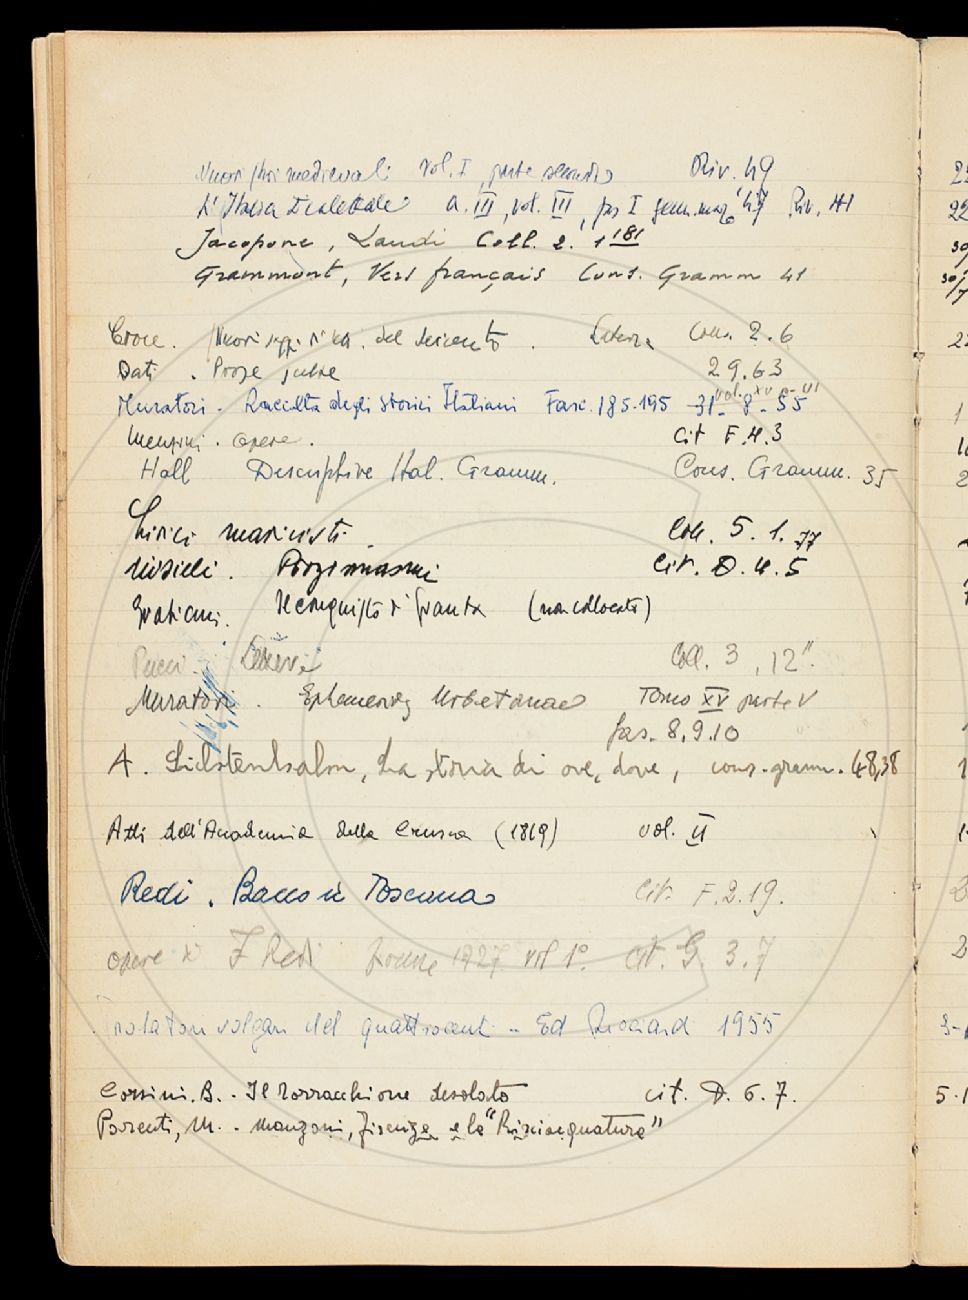 Nuovi studi medievali vol. I, parte seconda Riv. 49
L'Italia Dialettale a. III, vol. III, fas I genn. mag '27 Riv. 41
Jacopone, Laudi Coll. 2. 1 181
Grammont, Vers français Cons. Gramm 41
Croce. Nuovi saggi s. lett. del seicento. Laterza Coll. 2.6
Dati. Prose 29.63
Muratori. Raccolta degli Storici Italiani Fasc. 185-195 31-8-55
vol. XV p. VI
Menzini. opere. Cit F.4.3
Hall Descriptive Ital. Gramm. Cons. Gramm. 35
Lirici marinisti. Coll. 5. 1. 77
Nisieli. Proginnasmi Cit. D.4.5
Graziani. Il conquisto di Granata (non collocato)
Pucci. Coll. 3, 12".
Muratori. Ephemerides Urbetanae Tomo XV parte V
fas. 8.9.10
A. La storia di ove, dove, cons. gramm. 48,38
Atti dell'Accademia della Crusca (1819) vol. II
Redi. Bacco in Toscana Cit. F.2.19.
opere di F Redi Firenze 1727 vol 1°. Cit. G. 3.7
volgari del quattrocento - Ed Ricciardi 1955
Corsini. B. - Il Torracchione desolato cit. D. 6.7.
Parenti, M. - Manzoni, Firenze e la "Risciacquatura"
23
22
30/
30/7
22
1
2
1
2
3-
5-1